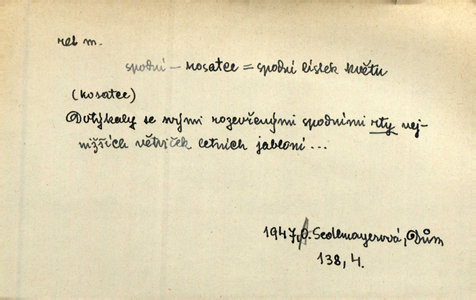 ret m.
spodní – kosatce = spodní lístek květu
(kosatce)
Dotýkaly se svými rozevřenými spodními rty nej-
nižších větviček letních jabloní ...
1947, A. Sedlmayerová, Dům
138, 4.